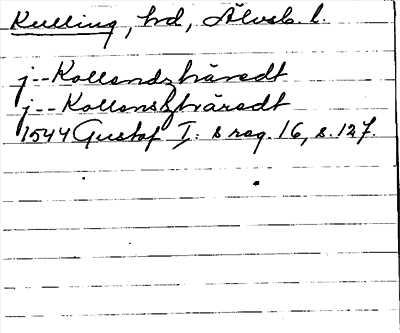 Kulling, hd, Älvsb. l.
j Kollandzhäredt
j Kollanszhäredt
1544 Gustaf I:s reg. 16, s. 127.